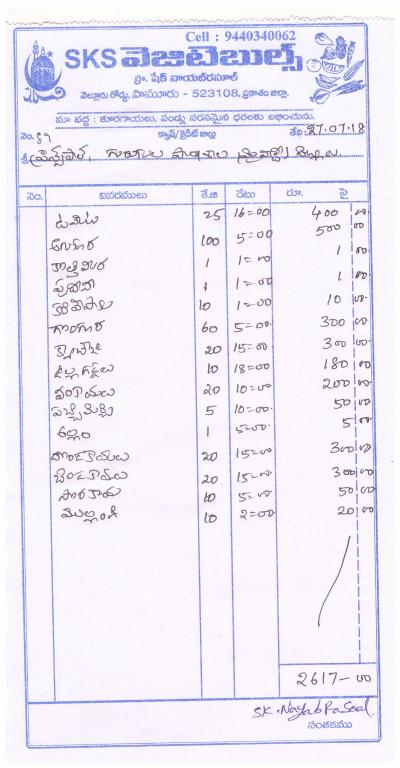 Cell : 9440340062
SKS వెజిటెబుల్స్
ప్రొ. షేక్ నాయబ్‌రసూల్
వెల్లూరు రోడ్డు, పామూరు - 523108, ప్రకాశం జిల్లా.
మా వద్ద : కూరగాయలు, పండ్లు సరసమైన ధరలకు లభించును.
నెం. క్యాష్/క్రెడిట్ బిల్లు తేది : 27.07.18
శ్రీ ప్రిన్సిపాల్, గురుకుల పాఠశాల
నెం. వివరములు కే.జి రేటు రూ. పై
టమోట 25 16=00 400 00
100 5=00 500 00
కొత్తిమీర 1 1=00 1 00
పుదీనా 1 1=00 1 00
కరివేపాకు 10 1=00 10 00
గోంగూర 60 5=00 300 00
క్యాబేజి 20 15=00 300 00
ఉల్లగడ్డలు 10 18=00 180 00
వంకాయలు 20 10=00 200 00
పచ్చిమిర్చి 5 10=00 50 00
అల్లం 1 5=00 5 00
దొండకాయలు 20 15=00 300 00
బెండకాయలు 20 15=00 300 00
సొరకాయ 10 5=00 50 00
ముల్లంగి 10 2=00 20 00
2617-00
SK. Nayab Rasool
సంతకము